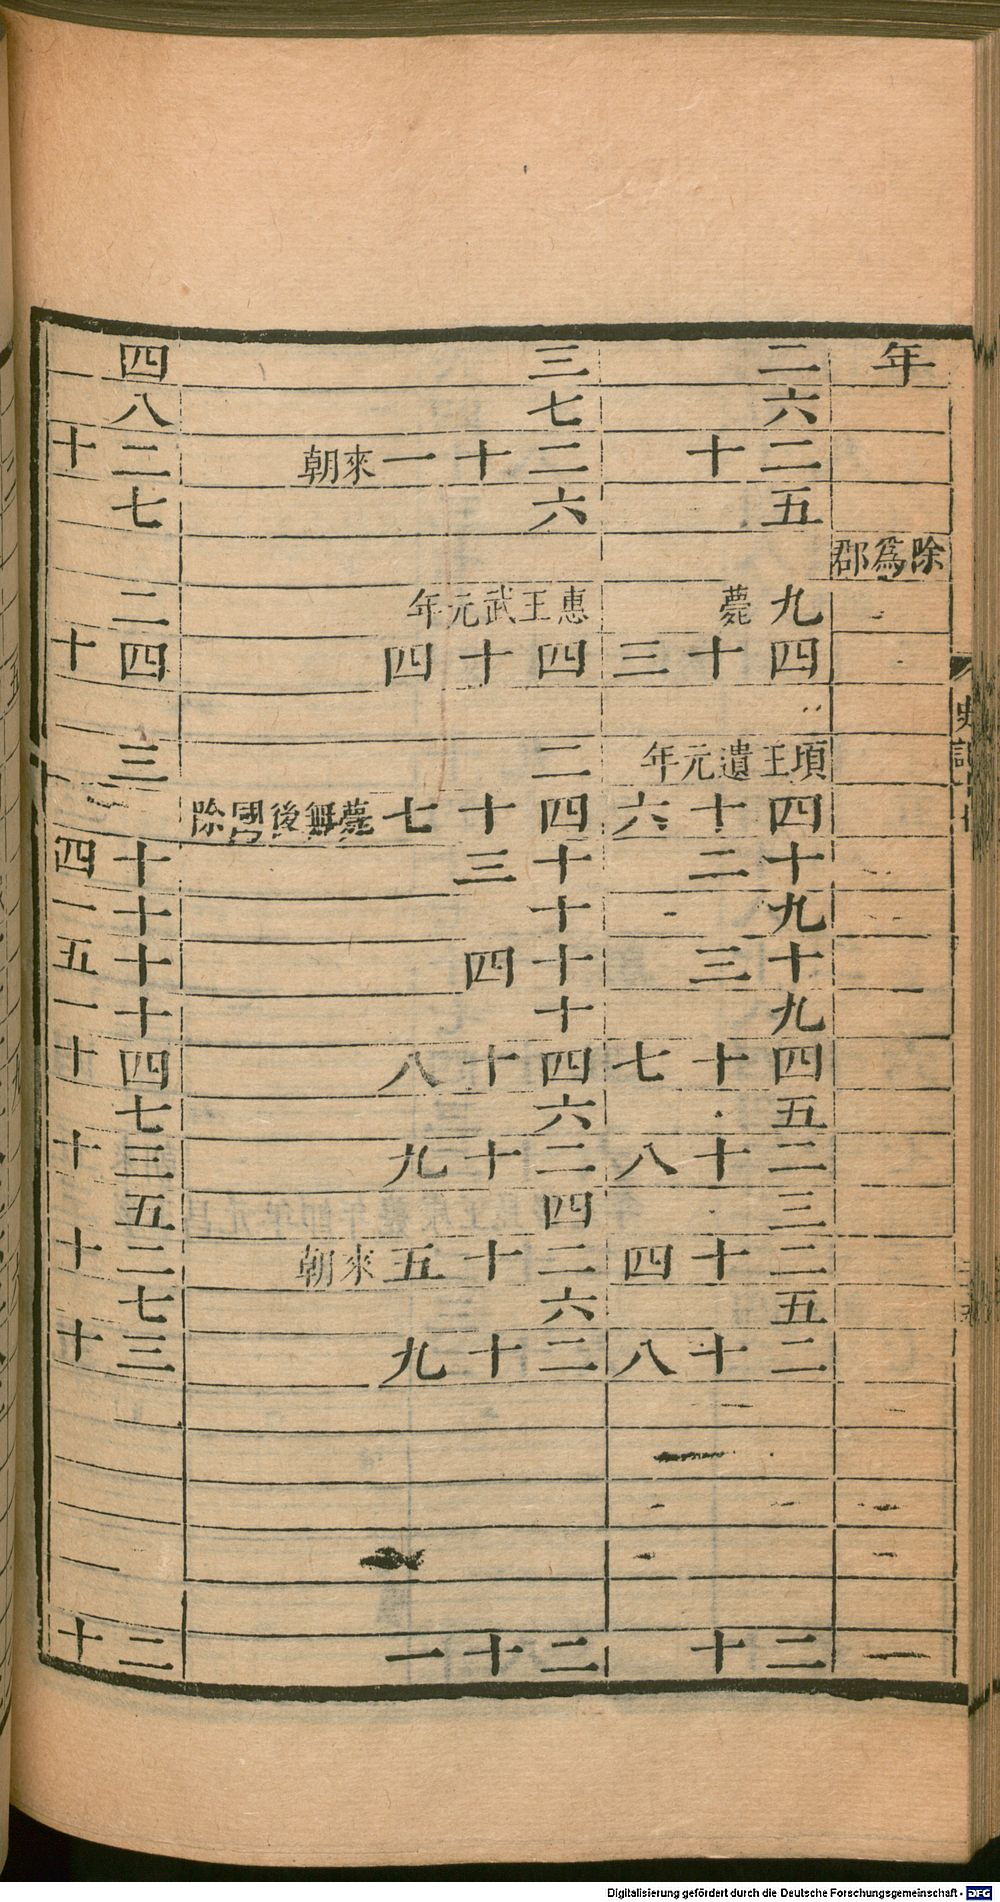 年
除爲郡
一
二
六
二十
五
九薨
四十三
頃王遺元年
四十六
十二
九
十三
九
四十七
五
二十八
三
二十四
五
二十八
二十
三
七
二十一來朝
六
惠王武元年
四十四
二
四十七薨無後國除
十三
十
十四
十
四十八
六
二十九
四
二十五來朝
六
二十九
二十一
四
八
二十
七
二
四十
三
十四
十一
十五
十一
四十
七
三十
五
二十
七
三十
二十
Digitalisierung gefördert durch die Deutsche Forschungsgemeinschaft - DFG